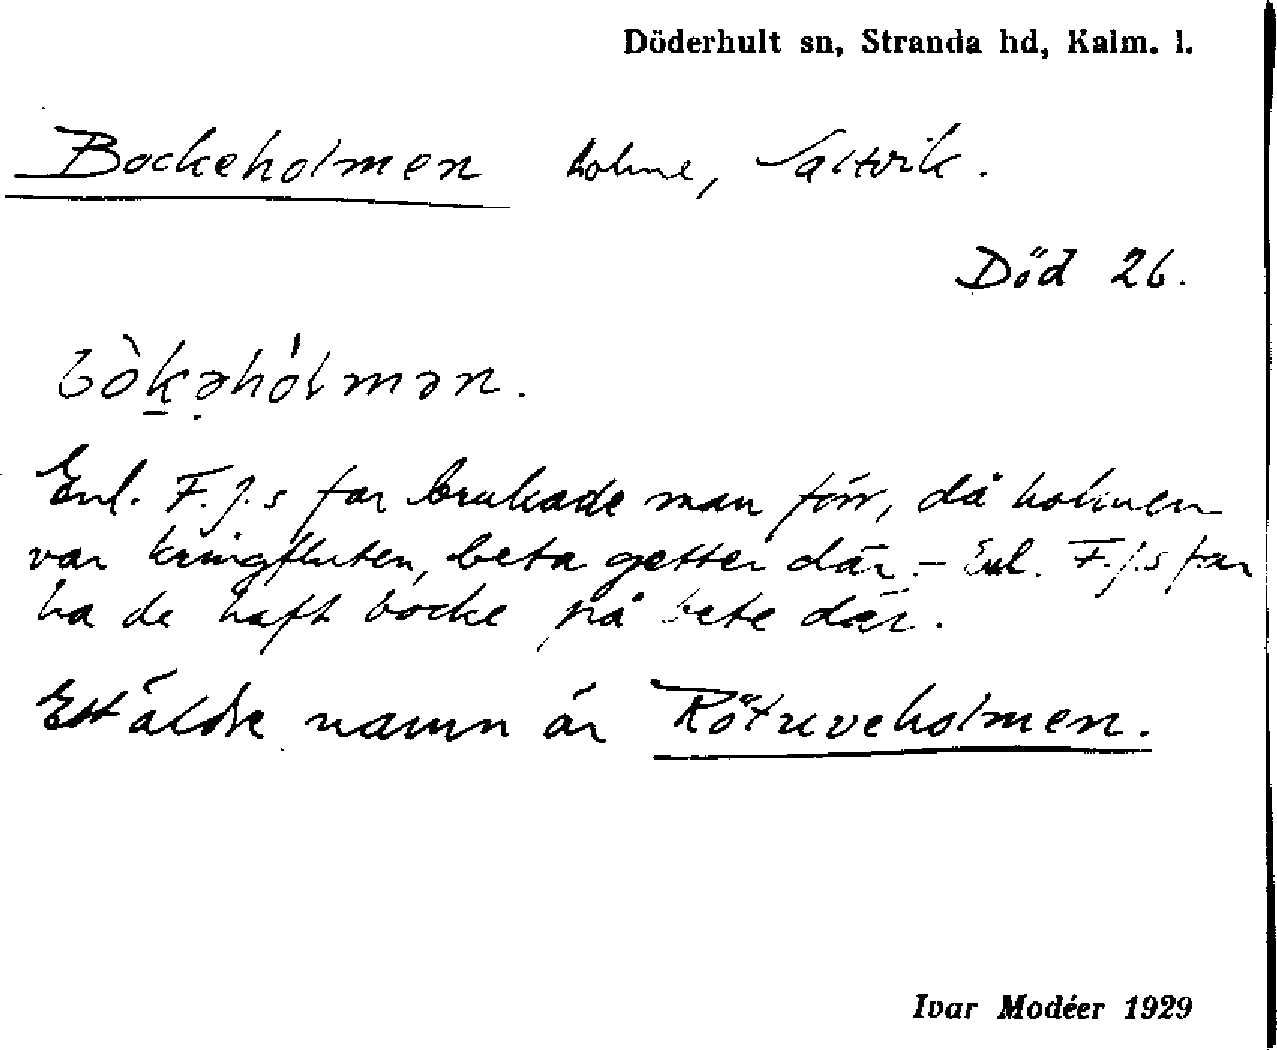 Döderhult sn, Stranda hd, Kalm. l.
Bockeholmen holme, Saltvik.
Död 26.
bòk̠ə̣hól mən.
Enl. F. J. s far brukade man förr, då holmen
var kringfluten, beta getter där. – Enl. F. J. s far
ha de haft bocke på bete där.
Ett äldre namn är Rötuveholmen.
Ivar Modéer 1929